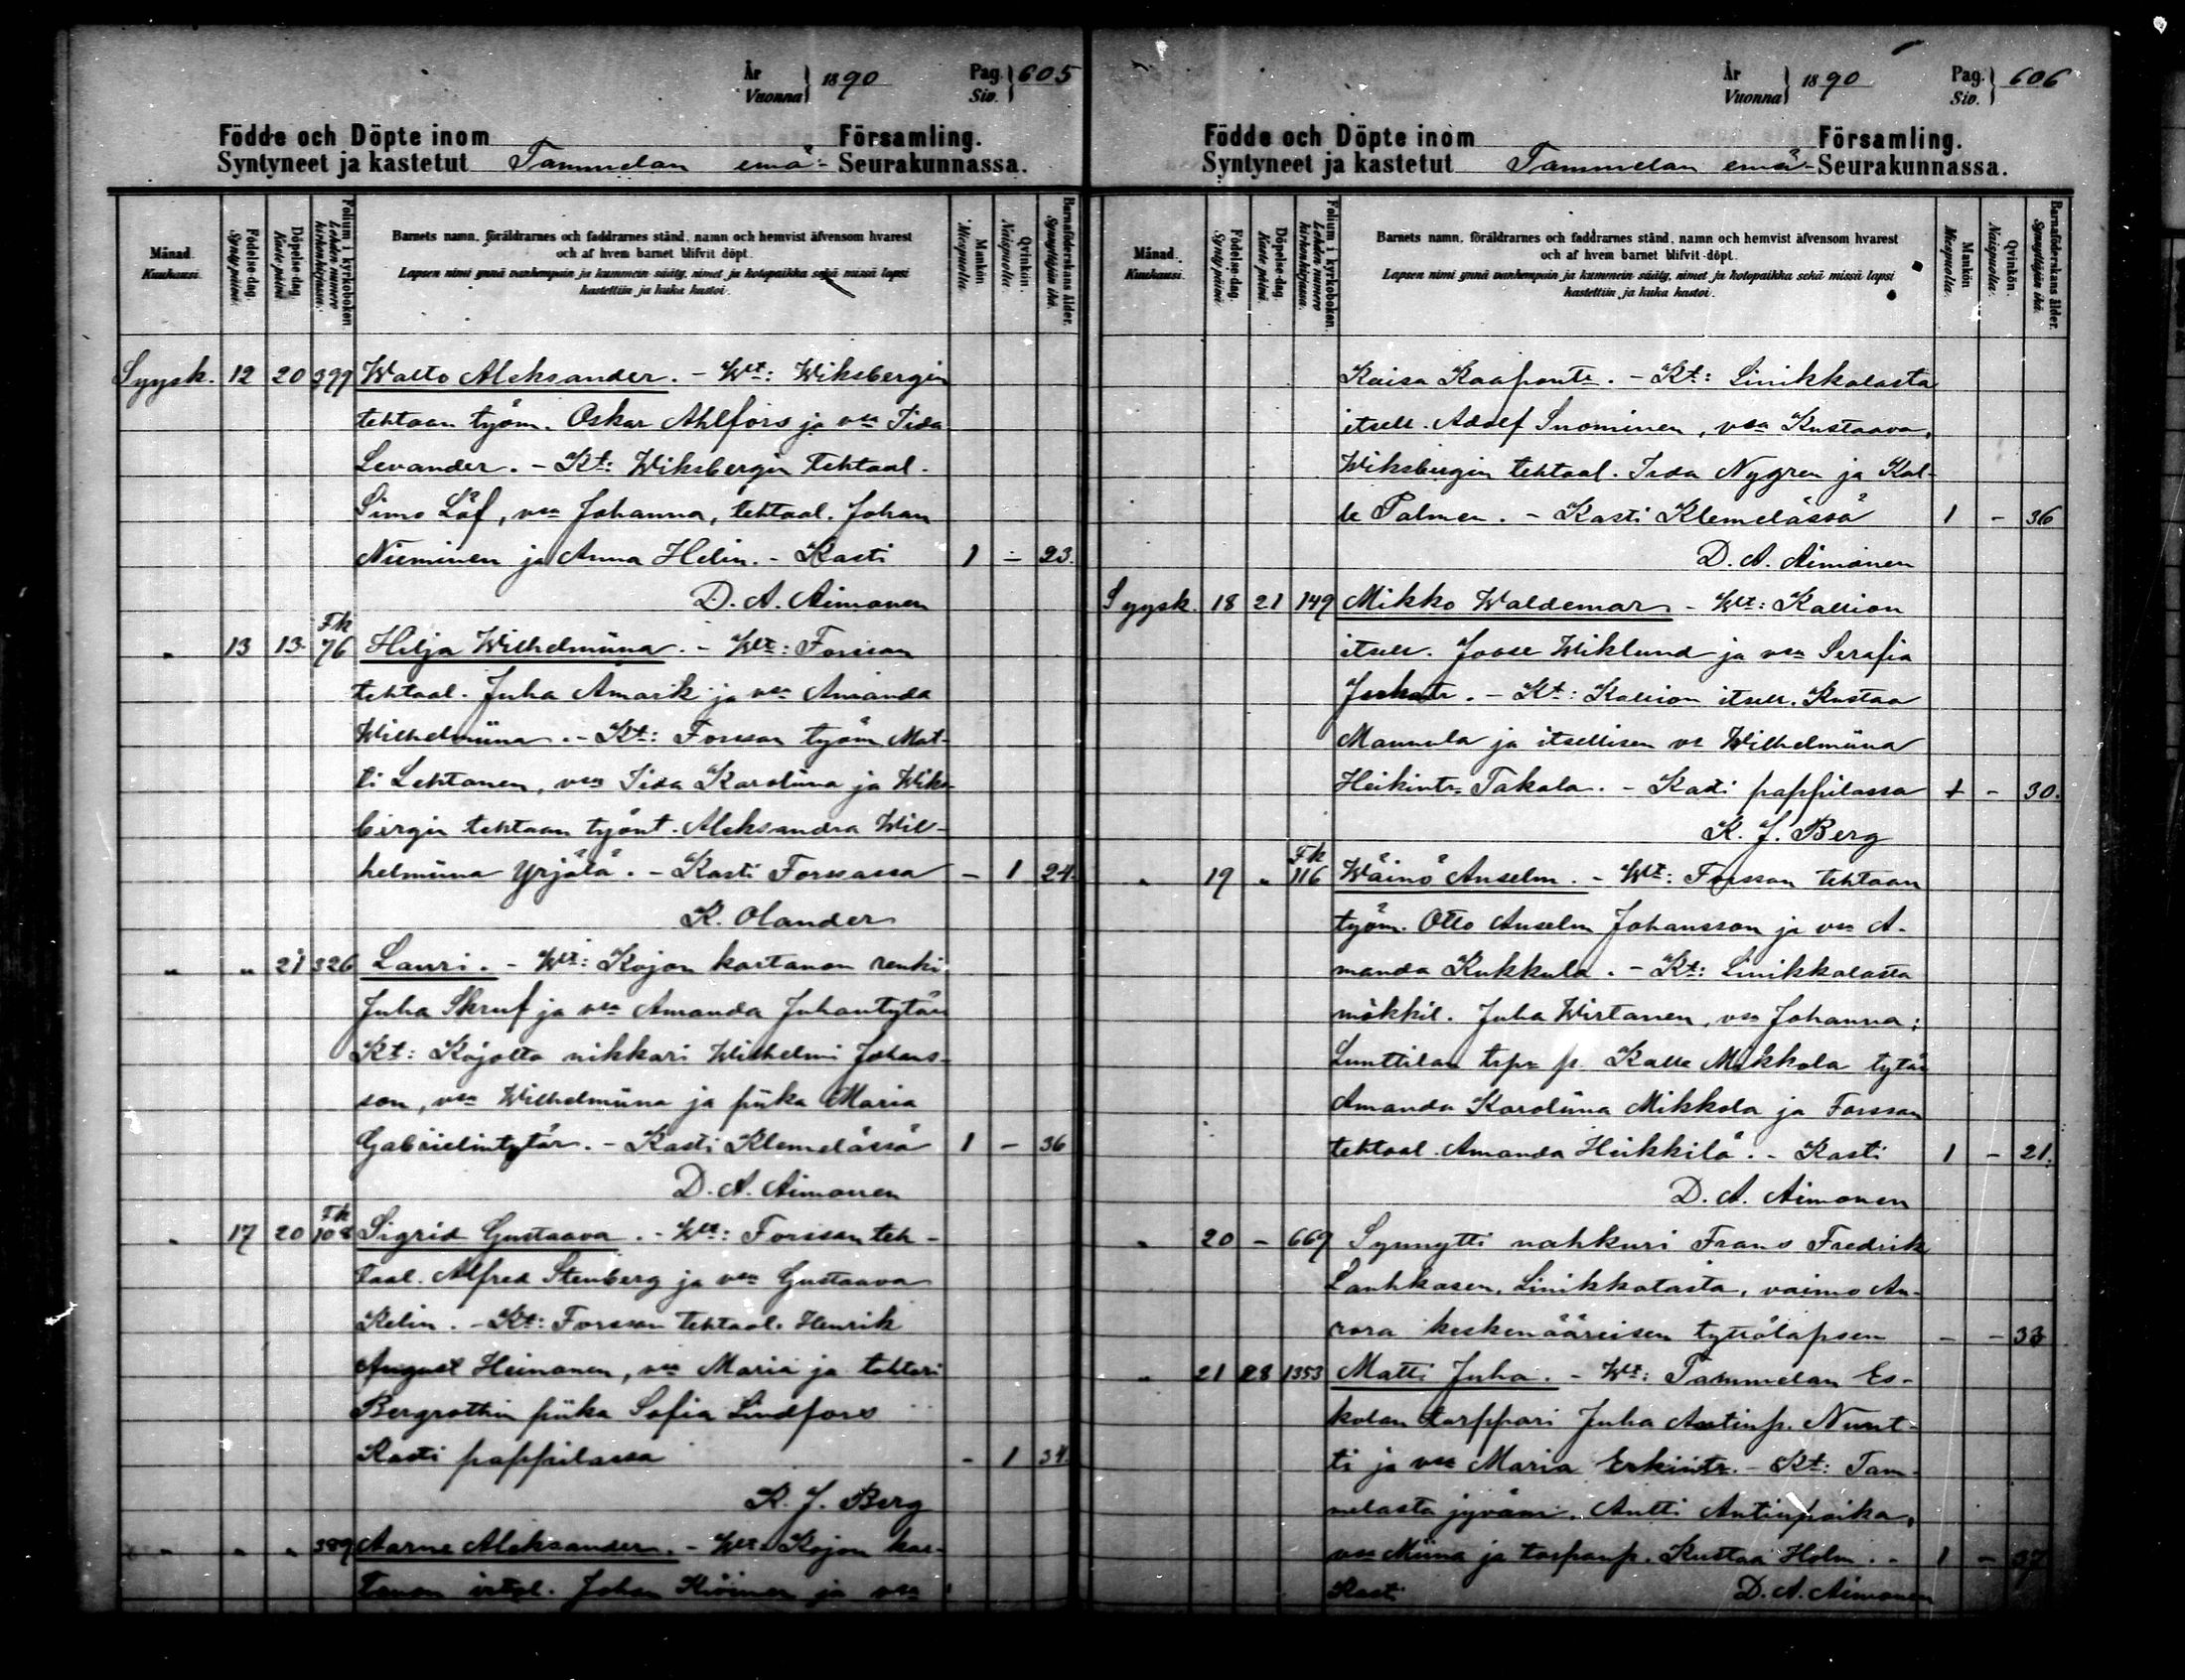 År
Vuonna } 1890
Pag.
Siv. } 605
Födde och Döpte inom Församling.
Syntyneet ja kastetut Tammelan emä- Seurakunnassa.
Månad.
Kuukausi.
Födelse-dag.
Syntypäivä.
Döpelse-dag.
Kaste päivä
Folium i kyrkoboken.
Lehden numero
kirkonkirjassa.
Barnets namn, föräldrarnes och faddrarnes stånd, namn och hemvist äfvensom hvarest
och af hvem barnet blifvit döpt.
Lapsen nimi ynnä vanhempain ja kummein sääty, nimet ja kotopaikka sekä missä lapsi
kastettiin ja kuka kastoi.
Mankön
Miespuolia.
Qvinkön.
Naispuolia.
Barnaföderskans ålder.
Synnyttäjän ikä.
Syysk. 12 20 399 Walto Aleksander. - Wt: Wiksbergin
tehtaan työm. Oskar Ahlfors ja vsa Iida
Levander. - Kt: Wiksbergin tehtaal.
Simo Löf, vsa Johanna, tehtaal. Johan
Nieminen ja Anna Helin. - Kasti 1 - 23.
D. A. Aimonen
" 13 13. Fk 76 Hilja Wilhelmiina. - Wt: Forssan
tehtaal. Juha Amarik ja vsa Amanda
Wilhelmiina. - Kt: Forssan työm. Mat-
ti Lehtanen, vsa Iida Karoliina ja Wiks-
bergin tehtaan työnt. Aleksandra Wil-
helmiina Yrjälä. - Kasti Forssassa - 1 24.
K. Olander
" " 21 326 Lauri. - Wt: Kojon kartanon renki
Juha Skruf ja vsa Amanda Juhantytär
Kt: Kojolta nikkari Wilhelmi Johans-
son, vsa Wilhelmiina ja piika Maria
Gabrielintytär. - Kasti Klemelässä 1 - 36
D. A. Aimonen
" 17 20 Fk 108 Sigrid Gustaava. - Wt: Forssan teh-
taal. Alfred Stenberg ja vsa Gustaava
Kelin. - Kt: Forssan tehtaal. Henrik
August Heinonen, vsa Maria ja tohtori
Bergrothin piika Sofia Lindfors
Kasti pappilassa - 1 34.
K. J. Berg
" " " 389 Aarne Aleksander. - Wt: Kojon kar-
tanon ja vsa
År
Vuonna } 1890
Pag.
Siv. } 606
Födde och Döpte inom Församling.
Syntyneet ja kastetut Tammelan emä- Seurakunnassa.
Månad.
Kuukausi.
Födelse-dag.
Syntypäivä.
Döpelse-dag.
Kaste päivä.
Folium i kyrkoboken.
Lehden numero
kirkonkirjassa.
Barnets namn, föräldrarnes och faddrarnes stånd, namn och hemvist äfvensom hvarest
och af hvem barnet blifvit döpt.
Lapsen nimi ynnä vanhempain ja kummein sääty, nimet ja kotopaikka sekä missä lapsi
kastettiin ja kuka kastoi.
Mankön
Miespuolia.
Qvinkön.
Naispuolia.
Barnaföderskans ålder.
Synnyttäjän ikä.
Kaisa Kaapontr. - Kt: Linikkalasta
itsell. Adolf Suominen, vsa Kustaava,
Wiksbergin tehtaal. Iida Nygren ja Kal-
le Palmen. - Kasti Klemelässä 1 - 36
D. A. Aimonen
Syysk. 18 21 149 Mikko Waldemar - Wt: Kallion
itsell. Joose Wiklund ja vsa Serafia
- Kt: Kallion itsell. Kustaa
Mannula ja itsellisen vs Wilhelmiina
Heikintr. Takala. - Kasti pappilassa 1 - 30.
K. J. Berg
" 19 " Fk 116 Wäinö Anselm. - Wt: Forssan tehtaan
työm. Otto Anselm Johansson ja vsa A-
manda Kukkula. - Kt: Linikkalasta
mökkil. Juha Wirtanen, vsa Johanna;
Lunttilan trpr p. Kalle Mikkola tytär
Amanda Karoliina Mikkola ja Forssan
tehtaal. Amanda Heikkilä. - Kasti 1 - 21.
D. A. Aimonen
" 20 - 669 Synnytti nahkuri Frans Fredrik
Lauhkasen, Linikkalasta, vaimo Au-
rora keskenääreisen tyttölapsen - - 33
" 21 28 1353 Matti Juha. - Wt: Tammelan Es-
kolan torppari Juha Antinp. Nunt-
ti ja vsa Maria Erkintr. - Kt: Tam-
melasta jyväm. Antti Antinpoika,
vsa Miina ja torpanp. Kustaa Holm. - 1 - 37
Kasti D. A. Aimonen